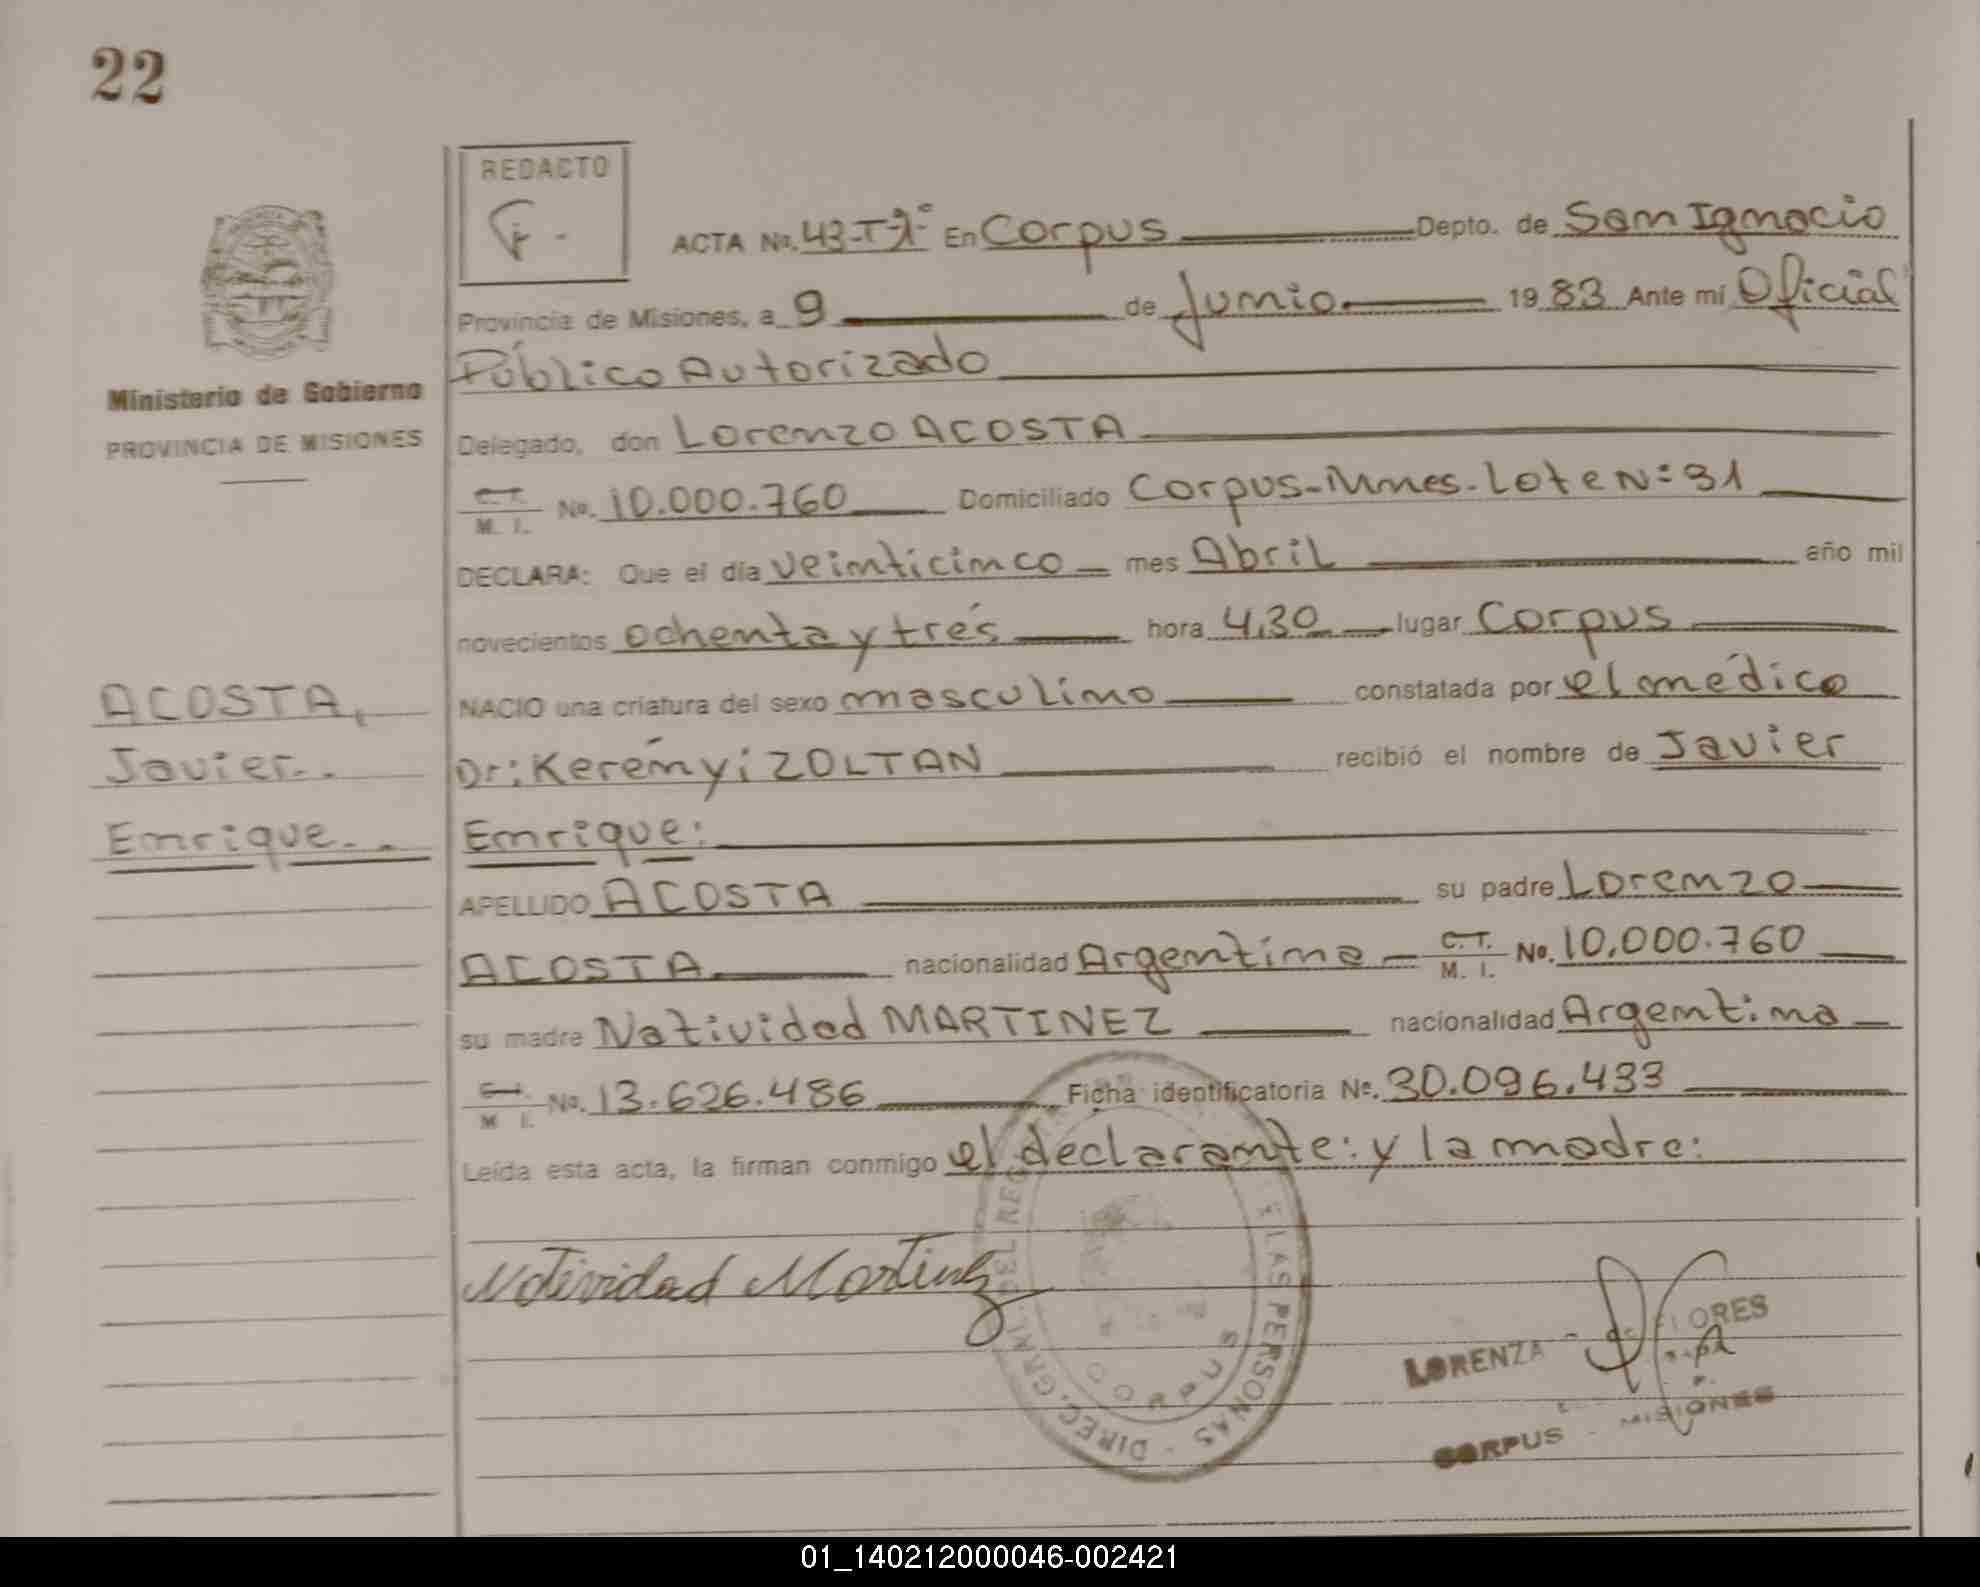 22
REDACTO
ACTA No. 43-Tº1º En Corpus Depto. de San Ignacio
Provincia de Misiones, a 9 de Junio 1983 Ante mí Oficial
Público Autorizado
Ministerio de Gobierno
PROVINCIA DE MISIONES
Delegado, don Lorenzo ACOSTA
C.I.
M. I. No. 10.000.760 Domiciliado Corpus-Mnes-Lote Nº 31
DECLARA: Que el día veinticinco mes Abril año mil
novecientos ochenta y trés hora 4,30 lugar Corpus
NACIO una criatura del sexo masculino constatada por el médico
Dr: Kerényi ZOLTAN recibió el nombre de Javier
Enrique:
ACOSTA,
Javier..
Enrique..
APELLIDO ACOSTA su padre Lorenzo
ACOSTA nacionalidad Argentina C.I. M. I. No. 10.000.760
su madre Natividad MARTINEZ nacionalidad Argentina
M I. No. 13.626.486 Ficha identificatoria No. 30.096.433
Leída esta acta, la firman conmigo el declarante: y la madre:
Natividad Martinez
DIREC. GRAL. DEL REG. LAS PERSONAS
CORPUS
LORENZA FLORES
CORPUS - MISIONES
01_140212000046-002421